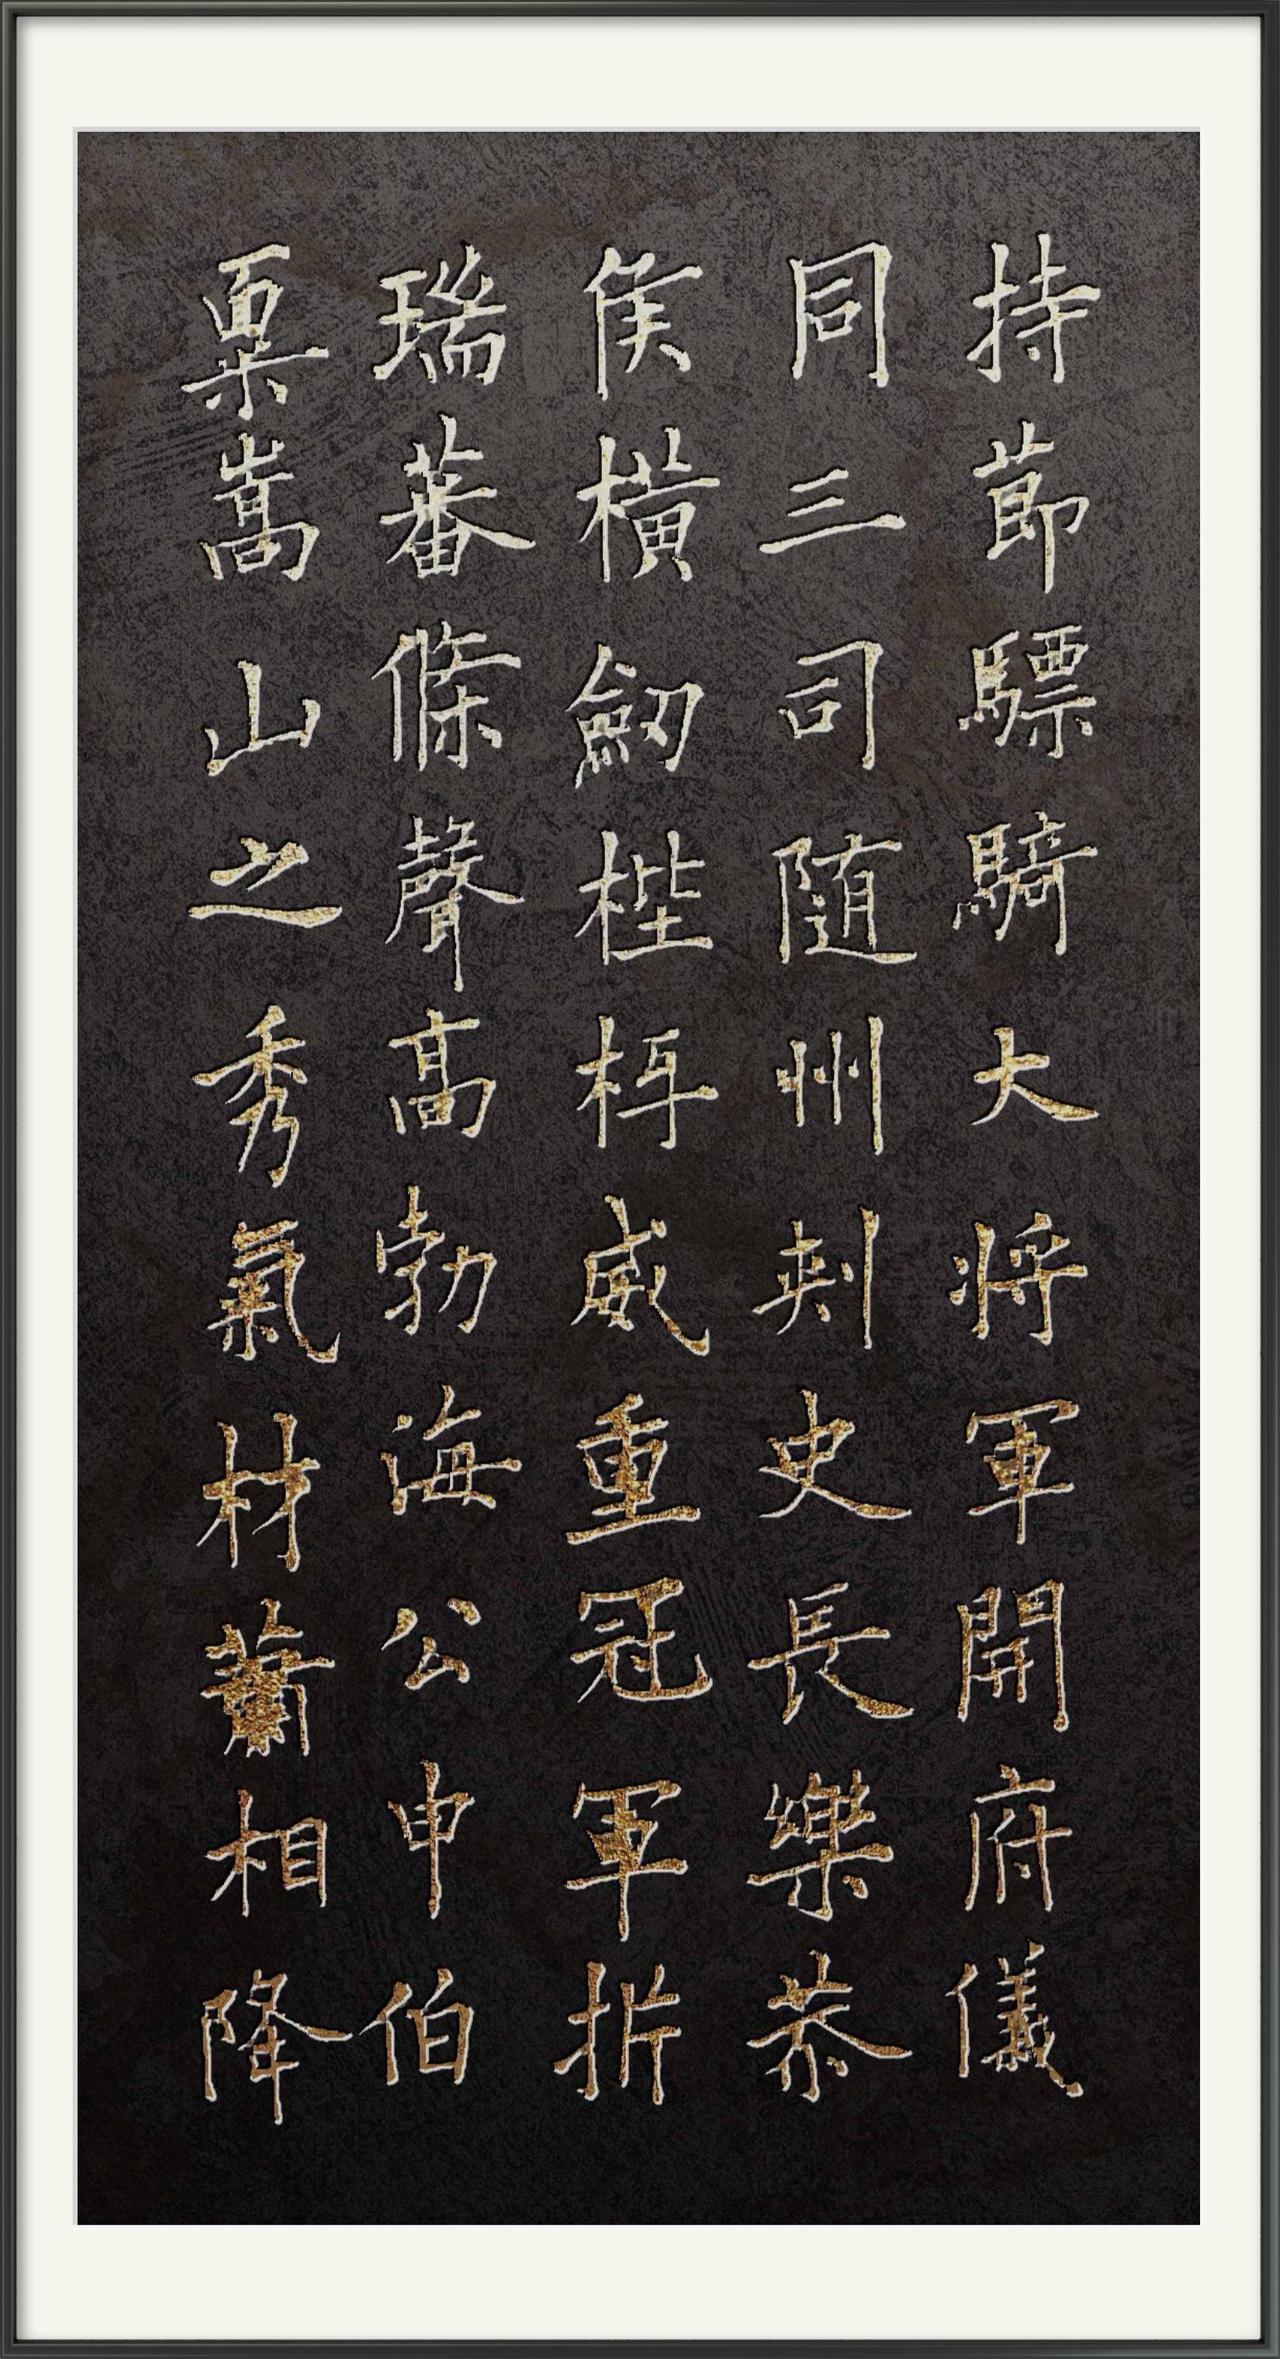 持節驃騎大將軍開府儀
同三司随州刺史長樂恭
侯橫劒梐枑威重冠軍折
瑞蕃條聲高勃海公申伯
稟嵩山之秀氣材蕭相降